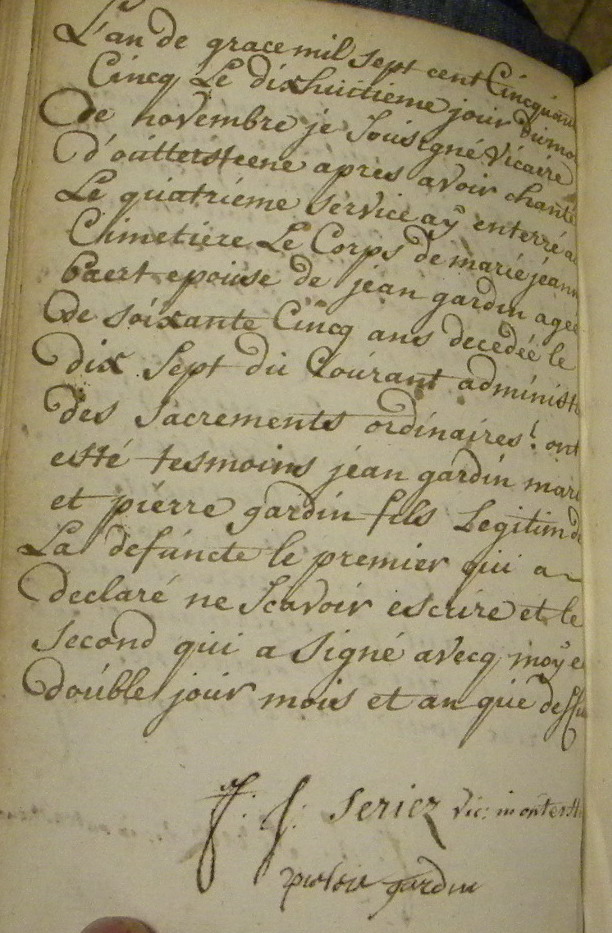 L'an de grace mil sept cent Cincquan
Cincq Le dixhuitieme jour du mo
de novembre je sousigné vicaire
d'outtersteene apres avoir chanté
Le quatriéme service aÿ enterré a
Cimetiere Le Corps de marie jeann
baert epouse de jean gardin ageé
de soixante Cincq ans decedée le
dix sept du Courant administ
des sacrements ordinaires! ont
esté tesmoins jean gardin mari
et pierre gardin fils Legitim d
La defuncte le premier qui a
declaré ne scavoir escrire et le
second qui a signé avecq moÿ e
double jour mois et an que dessu
f: f: seriez vic:
gardin